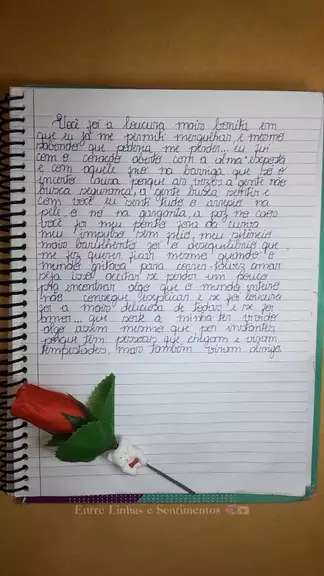 Você foi a loucura mais bonita em
que eu já me permiti mergulhar e mesmo
sabendo que poderia me perder... eu fui
com o coração aberto com a alma exposta
e com aquele frio na barriga que só o
incerto causa porque às vezes a gente não
busca segurança, a gente busca sentir e
com você eu senti tudo o arrepio na
pele, o nó na garganta, a paz no caos
você foi meu ponto fora da curva
meu impulso sem freio, meu silêncio
mais barulhento foi o desequilíbrio que
me fez querer ficar mesmo quando o
mundo gritava para correr talvez amar
seja isso! aceitar se perder um pouco
pra encontrar algo que o mundo inteiro
não consegue explicar e se foi loucura
foi a mais deliciosa de todas e se foi
amor... que sorte a minha ter vivido
algo assim mesmo que por instantes
porque tem pessoas que chegam e viram
tempestades, mais também viram abrigo.
Entre Linhas e Sentimentos